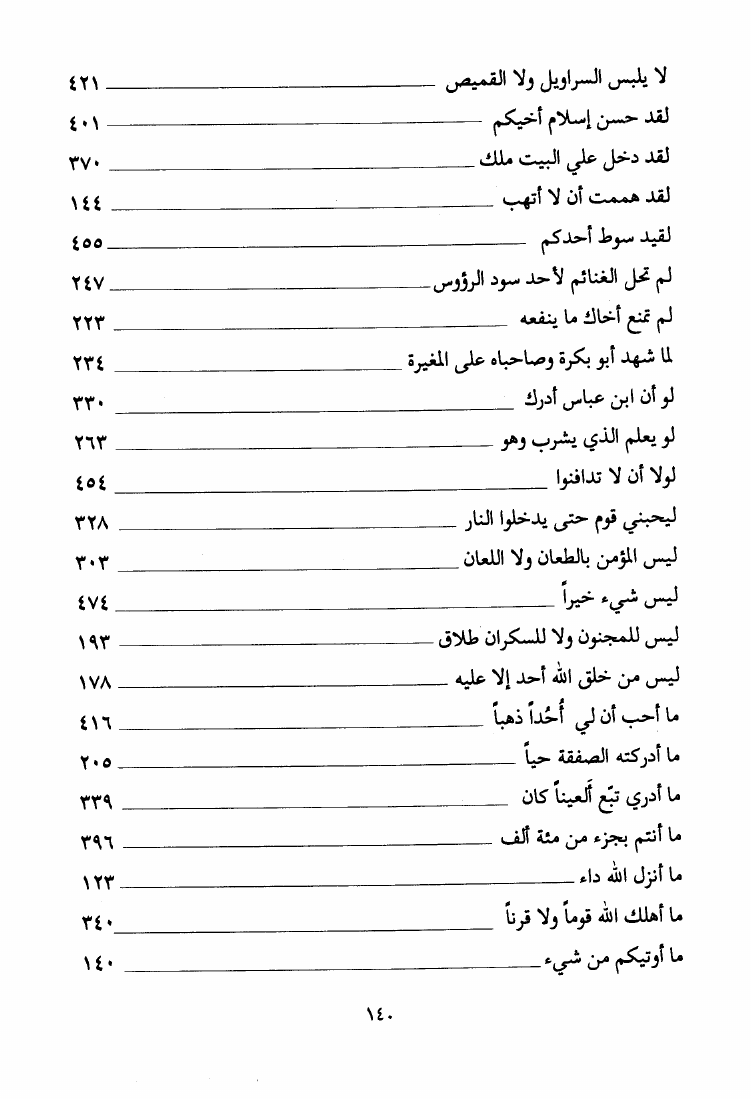 لا يلبس السراويل ولا القميص ٤٢١
لقد حسن إسلام أخيكم ٤٠١
لقد دخل علي البيت ملك ٣٧٠
لقد هممت أن لا أتهب ١٤٤
لقيد سوط أحدكم ٤٥٥
لم تحل الغنائم لأحد سود الرؤوس ٢٤٧
لم تمنع أخاك ما ينفعه ٢٢٣
لما شهد أبو بكرة وصاحباه على المغيرة ٢٣٤
لو أن ابن عباس أدرك ٣٣٠
لو يعلم الذي يشرب وهو ٢٦٣
لولا أن لا تدافنوا ٤٥٤
ليحبني قوم حتى يدخلوا النار ٣٢٨
ليس المؤمن بالطعان ولا اللعان ٣٠٣
ليس شيء خيراً ٤٧٤
ليس للمجنون ولا للسكران طلاق ١٩٣
ليس من خلق الله أحد إلا عليه ١٧٨
ما أحب أن لي أُحُداً ذهباً ٤١٦
ما أدركته الصفقة حياً ٢٠٥
ما أدري تبّع ألَعيناً كان ٣٣٩
ما أنتم بجزء من مئة ألف ٣٩٦
ما أنزل الله داء ١٢٣
ما أهلك الله قوماً ولا قرناً ٣٤٠
ما أوتيكم من شيء ١٤٠
١٤٠